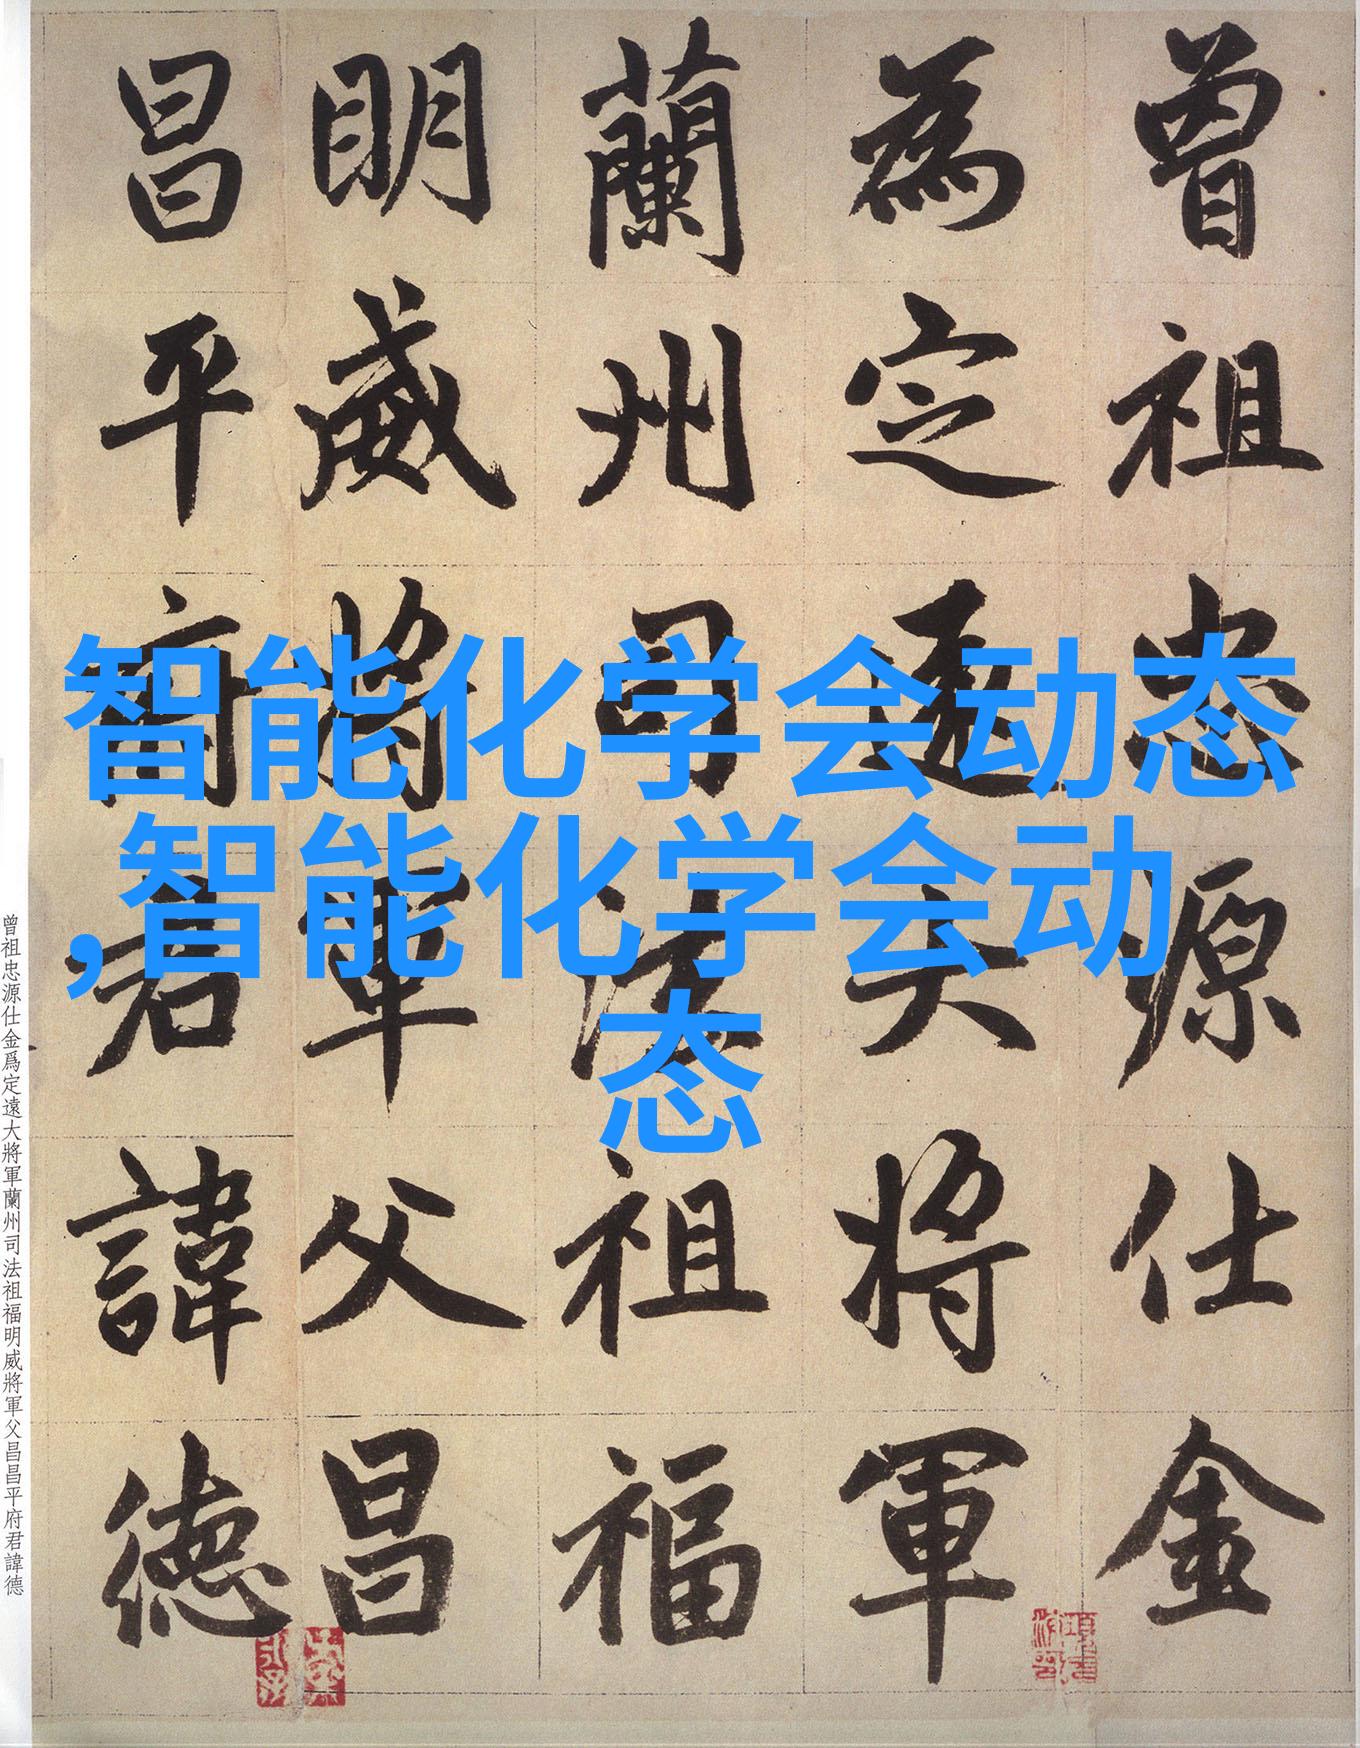 曾祖忠源仕金
為定遠大将軍
蘭州司法祖福
明威将軍父昌
昌平府君諱德
智能化学会动态
,智能化学会动
态
曾祖忠源仕金爲定遠大將軍蘭州司法祖福明威將軍父昌昌平府君諱德